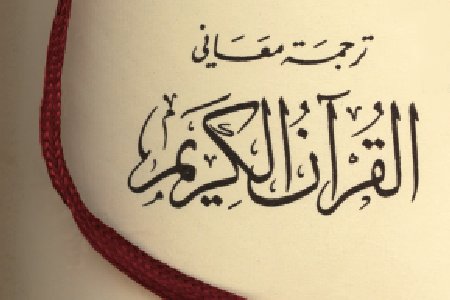 ترجمة معاني
القُرْآنُ الكَرِيم